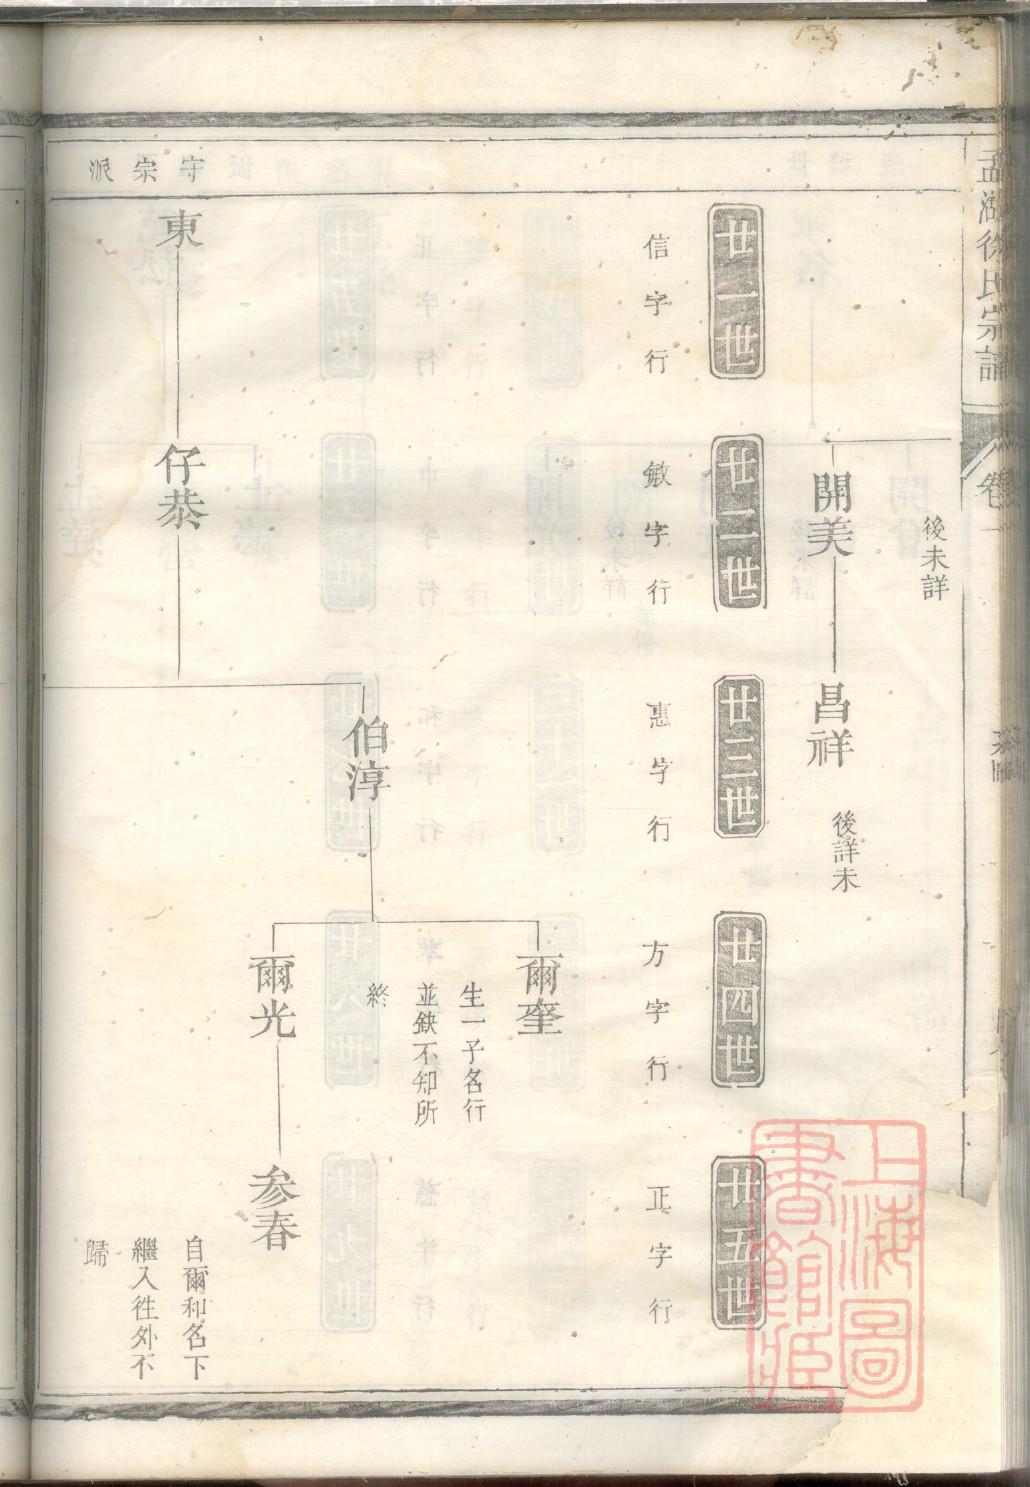 孟湖徐氏宗譜
卷一
後未詳
開美
昌祥
後詳未
廿一世
廿二世
廿三世
廿四世
廿五世
信字行
敏字行
惠字行
方字行
正字行
爾奎
生一子名行
並缺不知所
終
伯淳
爾光
参春
守宗派
東
仔恭
自爾和名下
繼入徃外不
歸
上海圖
書館藏